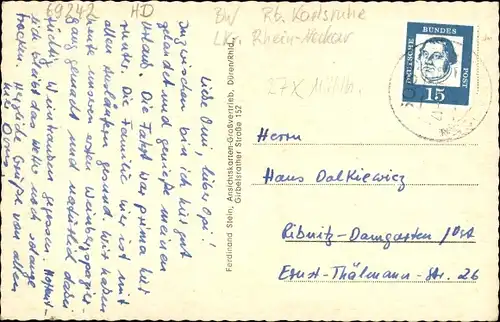 69242 HD
BW Rb. Karlsruhe
Lkr. Rhein-Neckar
27X Mühlh.
DEUTSCHE BUNDESPOST
15
Liebe Omi, lieber Opi!
Inzwischen bin ich hier gut
gelandet und genieße meinen
Urlaub. Die Fahrt war prima hier
runter. Die Familie hier ist mit
allen gesund. Wir haben
heute unseren ersten Weinbergspazier-
gang gemacht und natürlich dabei
tüchtig Weintrauben gegessen. Hoffent-
lich bleibt das Wetter noch solange
trocken. Herzliche Grüße von allen
Ferdinand Stein, Ansichtskarten-Großvertrieb, Düren/Rhld.
Girbelsrather Straße 157
Herrn
Hans Dalkiewicz
Ribnitz-Damgarten /Ost
Ernst-Thälmann-Str. 26